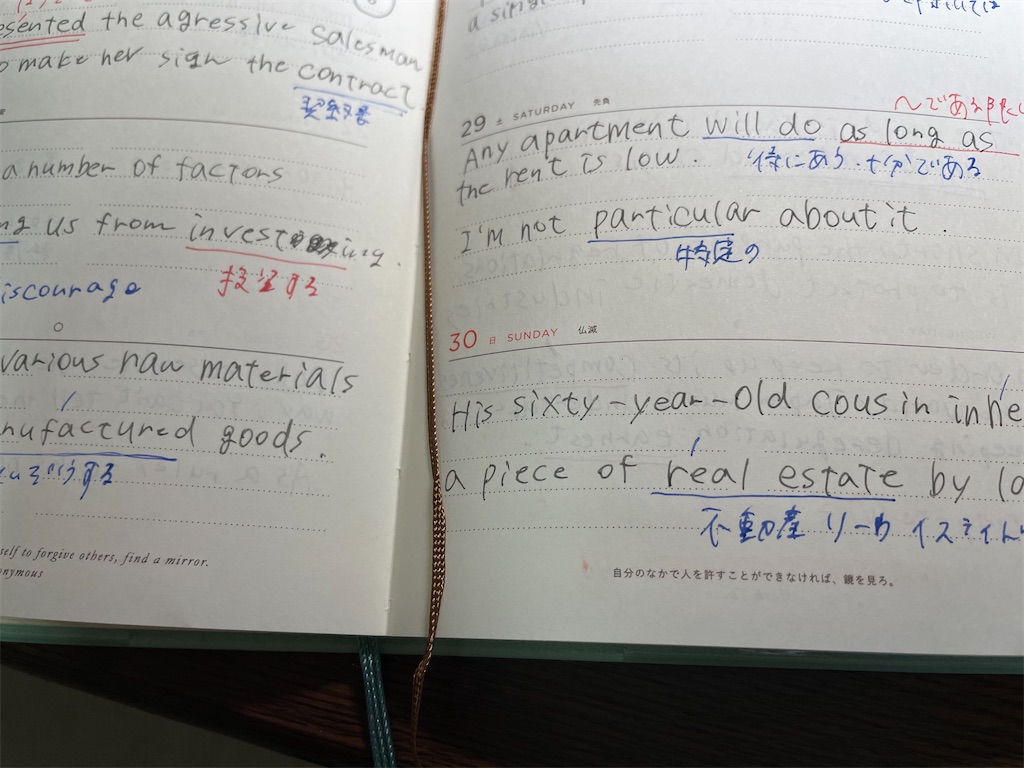 the agressive salesman
make her sign the contract
a number of factors
us from investing.
投資する
iscourage
various raw materials
nufactured goods.
self to forgive others, find a mirror.
nymous
29 土 SATURDAY 先負
Any apartment will do as long as
the rent is low.
十分である
I'm not particular about it.
特定の
30 日 SUNDAY 仏滅
His sixty-year-old cousin inhe
a piece of real estate by lo
不動産 リーウ イステイト
自分のなかで人を許すことができなければ、鏡を見ろ。